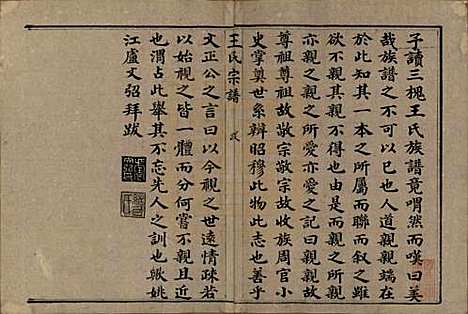 予讀三槐王氏族譜竟喟然而嘆曰美
哉族譜之不可以已也人道親親端在
於此知其一本之所屬而聯而叙之雖
欲不親其親不得也是而親之所親
亦親之親之所愛亦愛之記曰親親故
尊祖尊祖故敬宗敬宗故收族周官小
史掌奠世系辨昭穆此物此志也善乎
王氏宗譜
文正公之言曰以今視之世遠情疎若
以始視之皆一體而分何嘗不親且近
也渭占此舉其不忘先人之訓也歟姚
江盧文弨拜跋